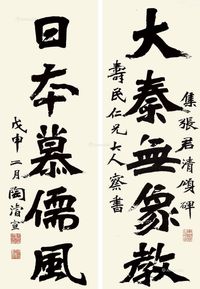 大秦無象教
集張君清頌碑
壽民仁兄大人察書
日本慕儒風
戊申二月陶濬宣